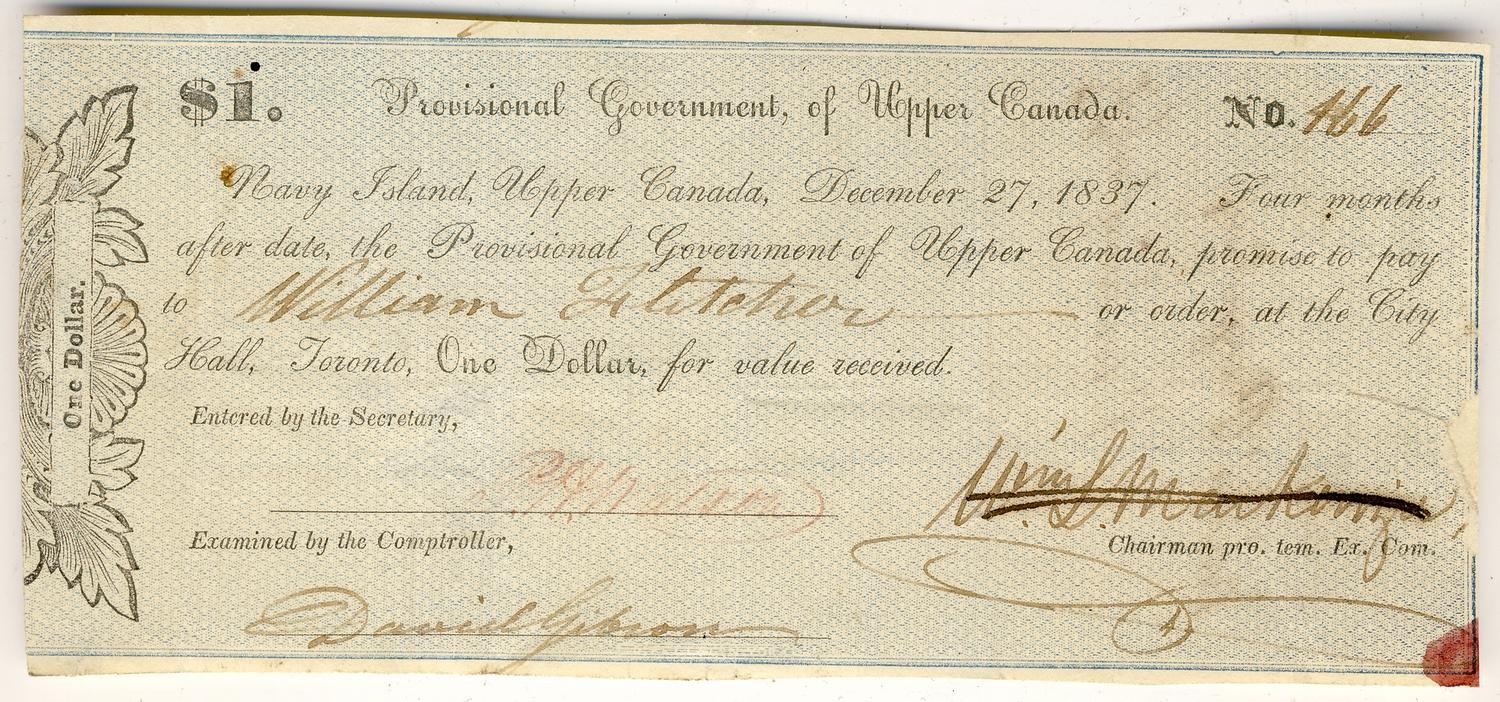 $1. Provisional Government, of Upper Canada. No. 166
Navy Island, Upper Canada, December 27, 1837. Four months
after date, the Provisional Government of Upper Canada, promise to pay
to William Fletcher or order, at the City
Hall, Toronto, One Dollar, for value received.
One Dollar.
Entered by the Secretary,
Wm. L. Mackenzie,
Examined by the Comptroller,
Chairman pro. tem. Ex. Com.
David Gibson